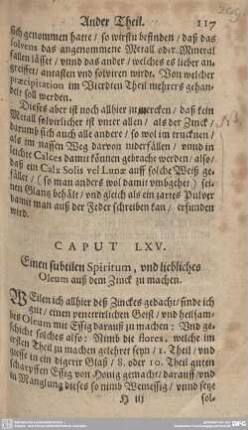 Ander Theil. 117
sich genommen hatte / so wirstu befinden / daß das
solvens das angenommene Metall oder Mineral
fallen lässet / vnnd das ander / welches es lieber an-
greiffet / antasten vnd solviren wirdt. Von welcher
præcipitation im Vierdten Theil mehrers gehan-
delt soll werden.
Dieses aber ist noch allhier zu mercken / daß kein
Metall solvirlicher ist vnter allen / als der Zinck /
darumb sich auch alle andere / so wol im trucknen /
als im nassen Weg darvon niderfällen / vnnd in
leichte Calces damit können gebracht werden / also /
daß ein Calx Solis vel Lunæ auff solche Weiß ge-
fället / (so man anders wol damit vmbgehet) sei-
nen Glantz behält / vnd gleich als ein zartes Pulver
damit man auß der Feder schreiben kan / erfunden
wird.
CAPUT LXV.
Einen subtilen Spiritum, vnd liebliches
Oleum auß dem Zinck zu machen.
WEilen ich allhier deß Zinckes gedacht / finde ich
gut / einen penetrirlichen Geist / vnd heilsam-
bes Oleum mit Essig darauß zu machen: Vnd ge-
schicht solches also: Nimb die flores, welche im
ersten Theil zu machen gelehret seyn / 1. Theil / vnd
giesse in ein digerir Glaß / 8. oder 10. Theil guten
scharpffen Essig von Honig gemacht / darauff / vnd
in Manglung dieses so nimb Weinessig / vnnd setze
H iij sol-